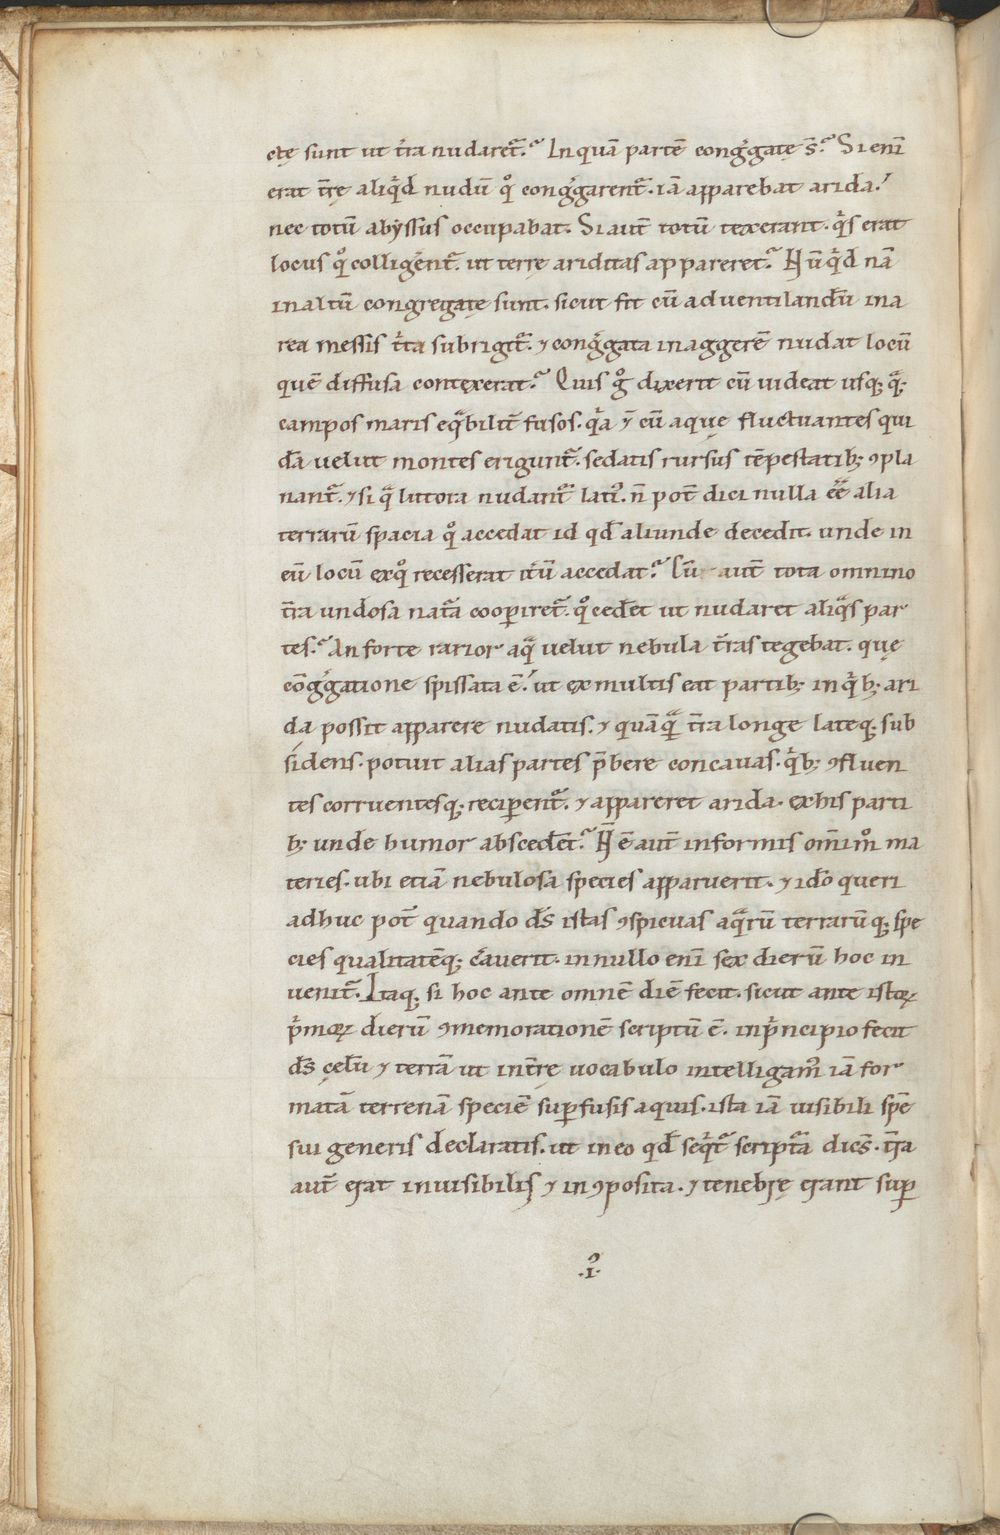 ctę sunt ut t̄ra nudaret᷑.ˀ In quā partē congͥgatę s̄.ˀ Si enī
erat t̄rę aliqͥd nudū qͦ congͥgarent᷑. iā apparebat arida.ˊ
nec totū abyssus occupabat. Si aut̄ totū texerant. qͥs erat
locus qͦ colligͥent᷑. ut terrę ariditas appareret.ˀ Nūqͥd nā
in altū congregatę sunt. sicut fit cū ad uentilandū in a
rea messis t̄ita subrigit᷑. ⁊ congͥgata in aggerē nudat locū
quē diffusa contexerat.ˀ Quis gͦ dixerit cū uideat usq; q̄q;
campos maris eqͣbilit̄ fusos. qͥa ⁊ cū aquę fluctuantes qui
dā uelut montes erigunt᷑. sedatis rursus tēpestatib; ꝯpla
nant᷑. ⁊ si qͣ littora nudant᷑ latiꝰ. ñ pot̄ dici nulla ee̅ alia
terrarū spacia qͦ accedat id qd̄ aliunde decedit. unde in
eū locū ex qͦ recesserat it̄ū accedat.ˀ Cū aut̄ tota omnino
t̄ra undosa nat᷑a cooꝑiret᷑. qͦ cedet ut nudaret aliqͣs par
tes.ˀ An forte rarior aqͣ uelut nebula t̄ras tegebat. quę
cōgͥgatione spissata ē.ˊ ut ex multis eat partib; in qͥb; ari
da possit apparere nudatis. ⁊ quāqͣ̄ t̄ra longe lateq; sub
sidens. potuit alias partes p̄bere concauas. qͥb; ꝯfluen
tes corruentesq; reciꝑent᷑. ⁊ appareret arida. ex his parti
b; unde humor abscedet̄.ˀ N̄ ē aut̄ informis om̄imͦ ma
teries. ubi etiā nebulosa species apparuerit. ⁊ ido̅ queri
adhuc pot̄ quando ds̄ istas ꝯspicuas aqͣrū terrarūq; spe
cies qualitatēq; c̄auerit. in nullo enī sex dierū hoc in
uenit᷑. Itaq; si hoc ante omnē diē fecit. sicut ante istoꝝ
pͥmoꝝ dierū ꝯmemorationē scriptū ē. in pͥncipio fecit
ds̄ cęlū ⁊ terrā ut in t̄rę uocabulo intelligamꝰ iā for
matā terrenā speciē suꝑfusis aquis. ista iā uisibili spē
sui generis declaratis. ut in eo qd̄ seqͥt᷑ script᷑a dicēs. t̄ra
aut̄ erat inuisibilis ⁊ inꝯposita. ⁊ tenebrę erant suꝑ
.iꝰ.